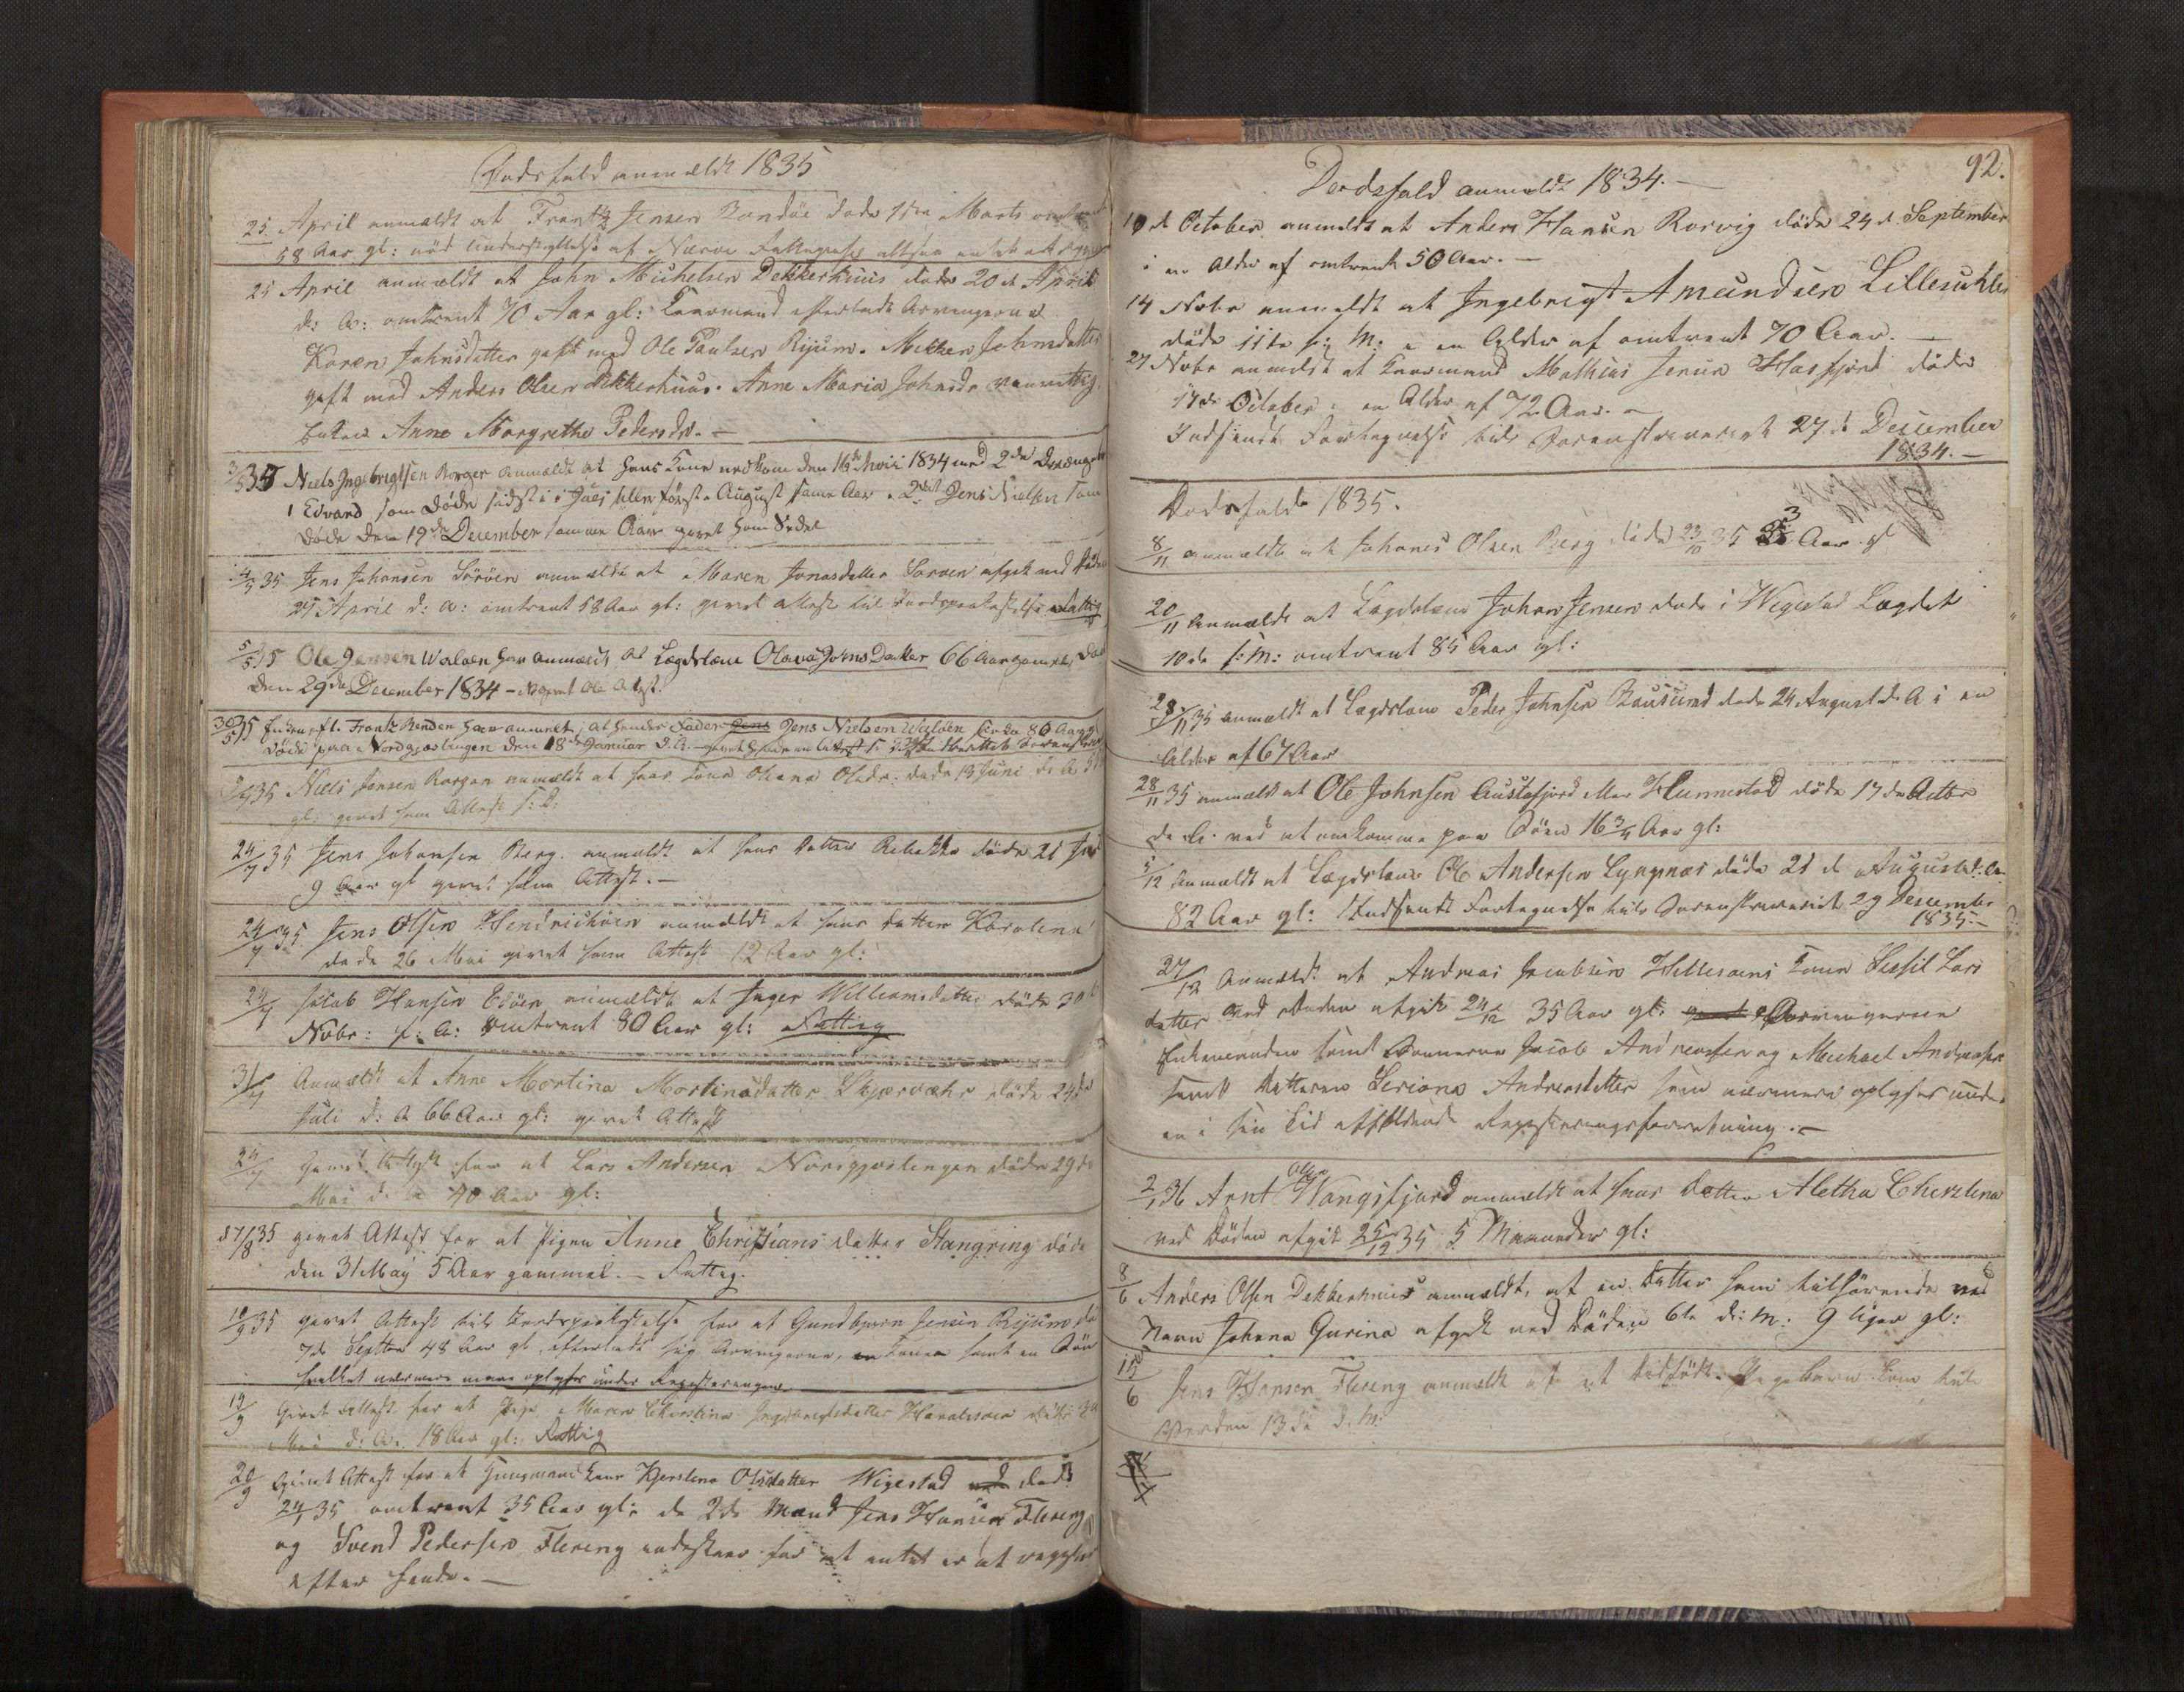 Dødsfald anmeldt 1835
25 April anmældt at Frantz Jensen Bondøe døde Marts
58 Aar gl: nød Understyttelse af
25 April anmældt at John Michelsen Dekkerhuus døde 20de April
d: A: omtrent 70 Aar gl: Leermand efterladt Arvingerne
Karen Johnsdatter gift med Ole Paulsen Rijum. Mekken Johnsdatter
gift med Anders Olsen Dekkerhuus. Anne Maria Johnsdr vanvittig
Enken Anne Margrethe Pedersdr. —
Niels Ingebrigtsen Borger anmældt at hans Kone nedkom den 16de Maii 1834 med 2de Drenge
1 Edvard som døde sidst i Juli eller først i August samme Aar. 2det Jens Nielsen som
døde den 19de December samme Aar givet ham Sedel
4/5 35 Jens Johansen Sørøen anmældt at Maren Jonasdatter Sørøen afgik ved Døden
27 April d: A: omtrent 58 Aar gl: givet Attest til Jordpaakastelse Fattig
5/5 35 Ole Jensen Waløen har anmeldt at Lægdslem Olava Johns Datter 66 Aar gammel døde
den 29de December 1834 – givet Ole Attest.
30/5 35 Enken eft. Frantz Bondøen har anmeldt, at hendes Fader Jens Jens Nielsen Waløen cirka 80 Aar gl
døde paa Nordgjæslingen den 18de Januar d. A. – givet hende en Attest
35 Niels Jensen Borgan anmældt at hans Kone Oleana Olsdr. døde 13 Juni d: A
gl: givet ham Attest s: D:
24/7 35 Jens Johansen Berg anmældt at hans Datter Rebekka døde 21 Juli
9 Aar gl givet ham Attest. —
24/7 35 Jens Olsen Hendrichøen anmældt at hans Datter Karolina
døde 26 Mai givet ham Attest 12 Aar gl:
24/7 Jacob Hansen Edøen anmældt at Inger Williamsdatter døde 30
Nobr: f: A: omtrent 80 Aar gl: Fattig
31/7 Anmældt at Anne Martina Martinsdatter Skjærvæhr døde 24de
Juli d: A 66 Aar gl: givet Attest
Givet Attest for at Lars Andersen Nordgjæslingen døde 29de
Mai d: A 40 Aar gl:
17/8 35 givet Attest for at Pigen Anne Christians Datter Stangring døde
den 31 May 5 Aar gammel. – Fattig.
10/9 35 givet Attest til Jordpaakastelse for at Gundbjørn Jensen Rijum
7de Septbr 48 Aar gl efterladt sig Arvingerne, en Kone samt en Søn
hvilket nærmere maae oplyses under Registeringen
19/9 Givet Attest for at Pige Maren Cherstina Ingebrigtsdatter døde
Mai d: A: 18 Aar gl: Fattig
20/9 Givet Attest for at Huusmand Kone Kjerstena Olsdatter Wigestad døde
24/1 35 omtrent 35 Aar gl: de 2de Mænd Jens Hansen Flereng
og Svend Pedersen Flereng indestaar for at intet er at
efter hende. —
92.
Dødsfald anmeldt 1834. —
10de October anmeldt at Anders Hansen Rørvig døde 24de September
i en Alder af omtrent 50 Aar. —
14 Nobr anmeldt at Ingebrigt Amundsen
døde 11te s: M: i en Alder af omtrent 70 Aar. —
27 Nobr anmeldt at Leermand Mathias Jensen Hasfjord døde
17de October i en Alder af 72 Aar. —
Indsendt Fortegnelse til Sorenskriveriet 27de December
1834. —
Dødsfald 1835.
8/11 anmældt at Johanes Olsen Berg døde 23/10 35 Aar gl
20/11 Anmældt at Lægdslem Johan Jensen døde i Wigestad Lægdet
10de s: M: omtrent 85 Aar gl:
28/11 35 anmældt at Lægdslem Peder Johnsen døde 24 August d: A i en
Alder af 67 Aar
28/11 35 anmældt at Ole Johnsen Austafjord eller Hunnestad døde 17de Octbr
d: A: ved at omkomme paa Søen 16 3/4 Aar gl:
5/12 Anmældt at Lægdslem Ole Andersen Lyngnæs døde 21de August d: A
82 Aar gl: Indsendt Fortegnelse til Sorenskriveriet 29 December
1835. —
27/12 Anmældt at Andreas Jacobsen Kone Sessil Lars
datter ved Døden afgik 24/12 35 Aar gl: Arvingerne
Enkemanden samt Sønnerne Jacob Andreassen og Michael Andreassen
samt Datteren Seriana Andreasdatter som nærmere oplyses under
en i sin Tid afholdende Registeringsforretning. —
2/1 36 Arnt Olsen Wangsfjord anmældt at hans Datter Aletha Cherstena
ved Døden afgik 25/12 35 5 Maaneder gl:
8/6 Anders Olsen Dekkerhuus anmældt, at en Datter ham tilhørende ved
Navn Johana Gurina afgik ved Døden 6te d: M: 9 Uger gl:
15/6 Jens Hansen Flereng anmældt at et dødfødt Pigebarn kom til
Verden 13de d. M: